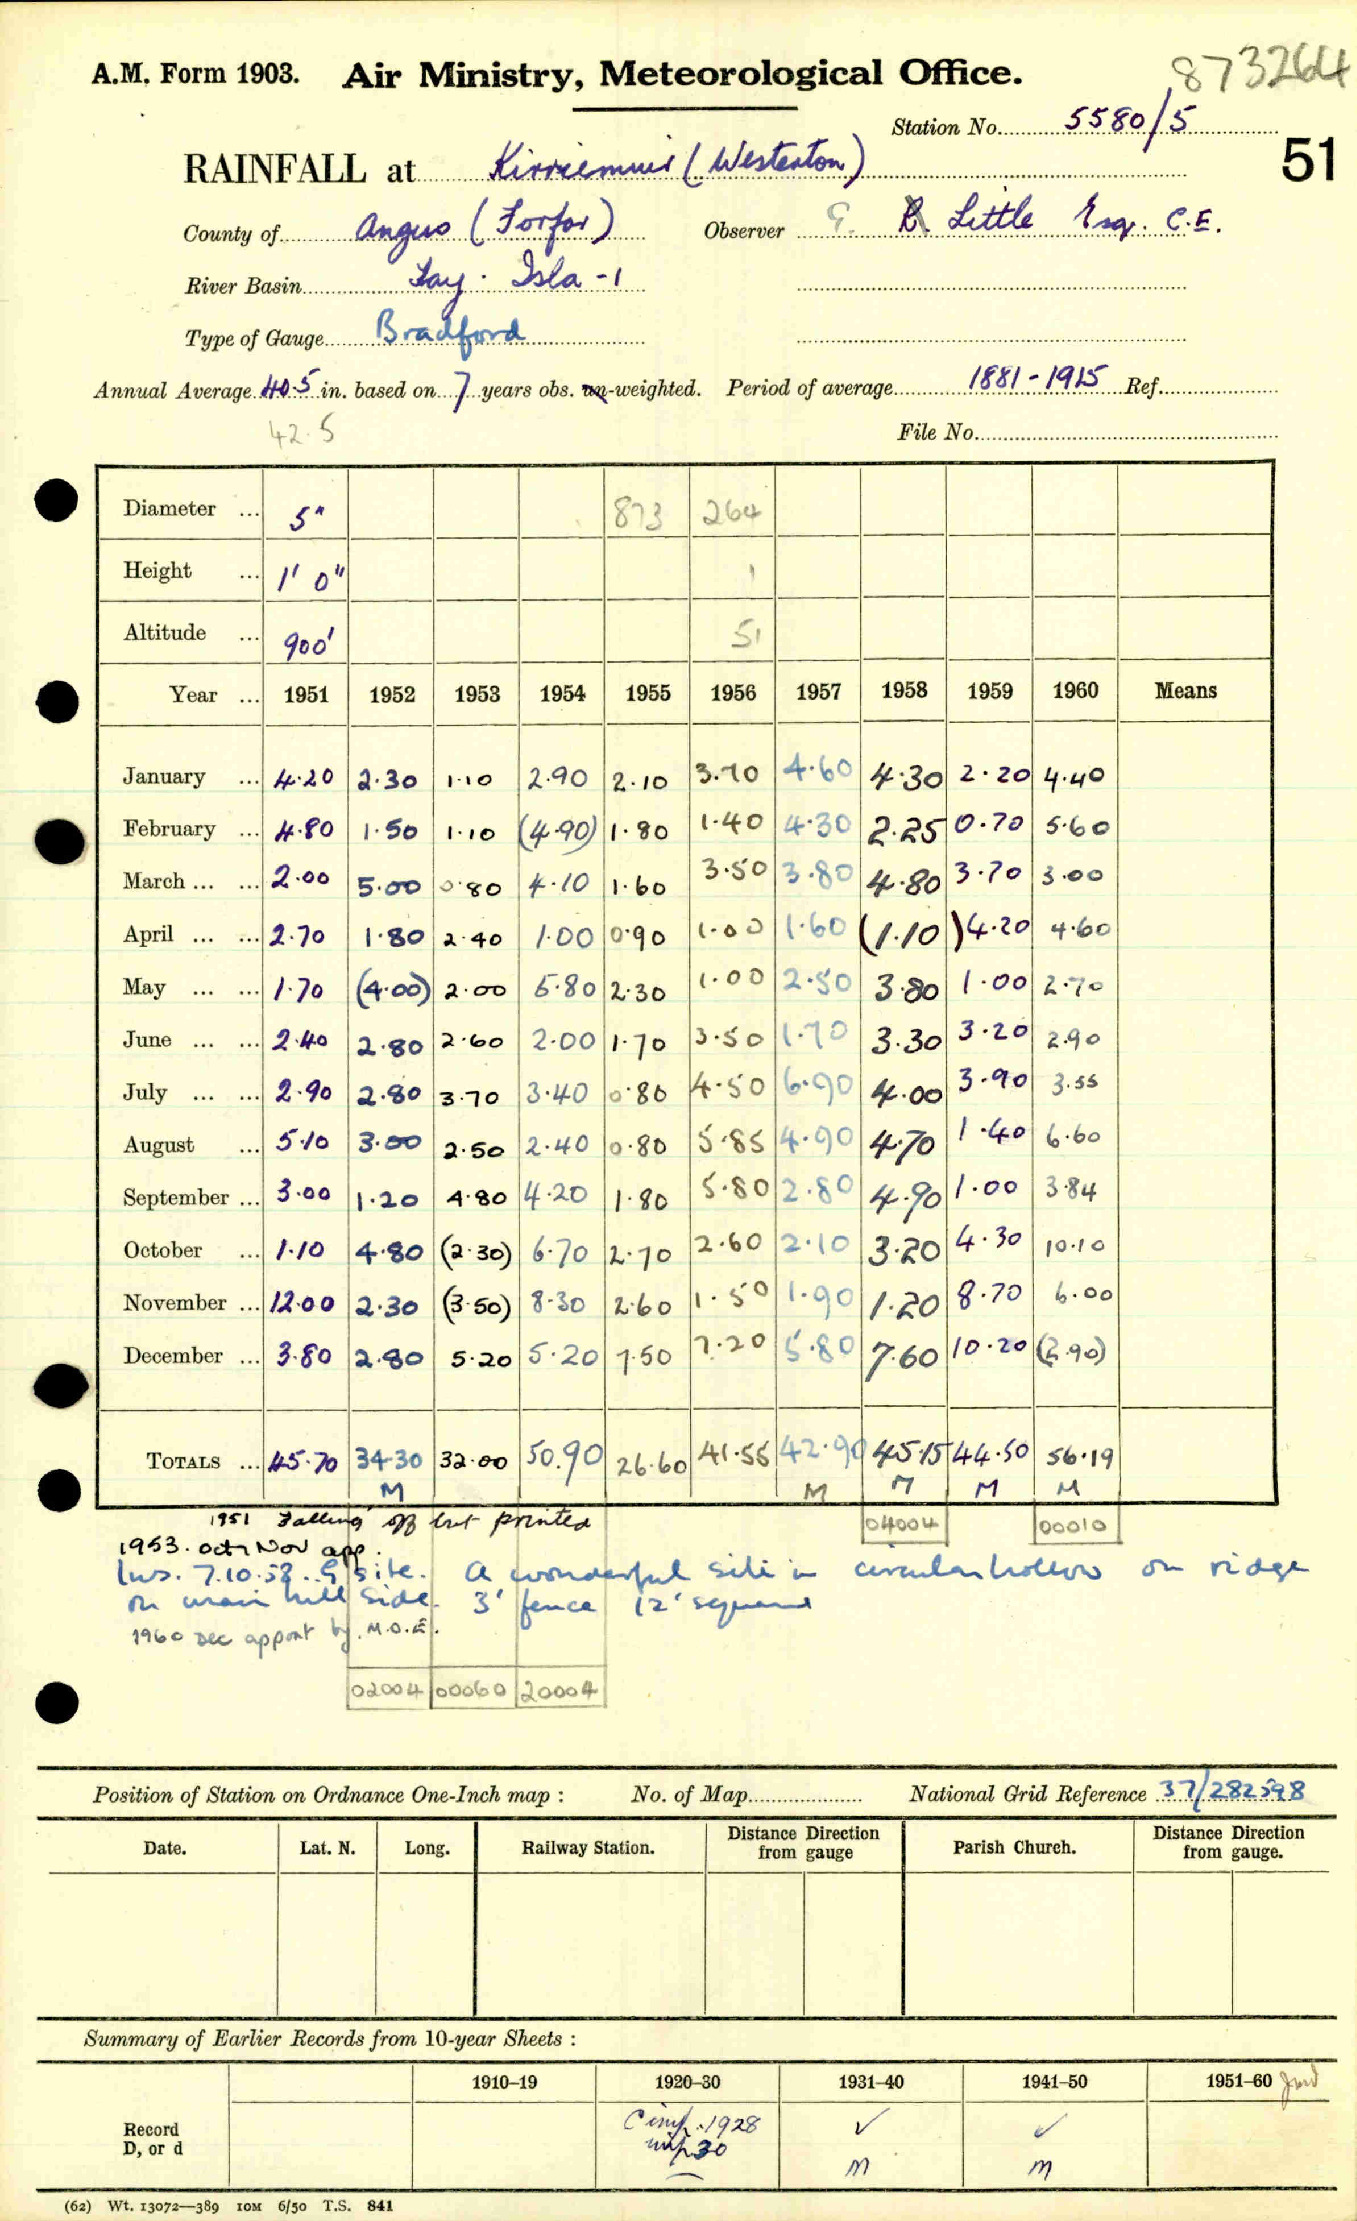 873264
A.M. Form 1903. Air Ministry, Meteorological Office.
Station No. 5580/5
51
RAINFALL at Kirriemuir (Westerton)
County of Angus (Forfar) Observer G. R. Little Esq. C.E.
River Basin Tay. Isla - 1
Type of Gauge Bradford
Annual Average 40.5 in. based on 7 years obs. un-weighted. Period of average 1881-1915 Ref.
42.5
File No.
Diameter ... 5" 873 264
Height ... 1' 0" 1
Altitude ... 900' 51
Year ... 1951 1952 1953 1954 1955 1956 1957 1958 1959 1960 Means
January ... 4.20 2.30 1.10 2.90 2.10 3.70 4.60 4.30 2.20 4.40
February ... 4.80 1.50 1.10 (4.90) 1.80 1.40 4.30 2.25 0.70 5.60
March ... ... 2.00 5.00 0.80 4.10 1.60 3.50 3.80 4.80 3.70 3.00
April ... ... 2.70 1.80 2.40 1.00 0.90 1.00 1.60 (1.10) 4.20 4.60
May ... ... 1.70 (4.00) 2.00 5.80 2.30 1.00 2.50 3.80 1.00 2.70
June ... ... 2.40 2.80 2.60 2.00 1.70 3.50 1.70 3.30 3.20 2.90
July ... ... 2.90 2.80 3.70 3.40 0.80 4.50 6.90 4.00 3.90 3.55
August ... 5.10 3.00 2.50 2.40 0.80 5.85 4.90 4.70 1.40 6.60
September ... 3.00 1.20 4.80 4.20 1.80 5.80 2.80 4.90 1.00 3.84
October ... 1.10 4.80 (2.30) 6.70 2.70 2.60 2.10 3.20 4.30 10.10
November ... 12.00 2.30 (3.50) 8.30 2.60 1.50 1.90 1.20 8.70 6.00
December ... 3.80 2.80 5.20 5.20 7.50 7.20 5.80 7.60 10.20 (2.90)
TOTALS ... 45.70 34.30 32.00 50.90 26.60 41.55 42.90 45.15 44.50 56.19
M M M M M
1951 Falling off but printed
04004 00010
1953. Oct, Nov app.
Ins. 7.10.58. G site. A wonderful site in circular hollow on ridge
on main hill side. 3' fence 12' square
1960 Dec appont by M.O.E.
02004 00060 20004
Position of Station on Ordnance One-Inch map : No. of Map National Grid Reference 37/282598
Date. Lat. N. Long. Railway Station. Distance from Direction gauge Parish Church. Distance from Direction gauge.
Summary of Earlier Records from 10-year Sheets :
1910–19 1920–30 1931–40 1941–50 1951–60
Record D, or d C imp. 1928 ✓ ✓
30 M M
(62) Wt. 13072—389 10M 6/50 T.S. 841